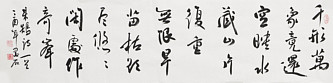 千形萬
象竟還
空映水
藏山片
復重
無限旱
苗枯欲
盡悠悠
閑處作
奇峰
來鵠詩